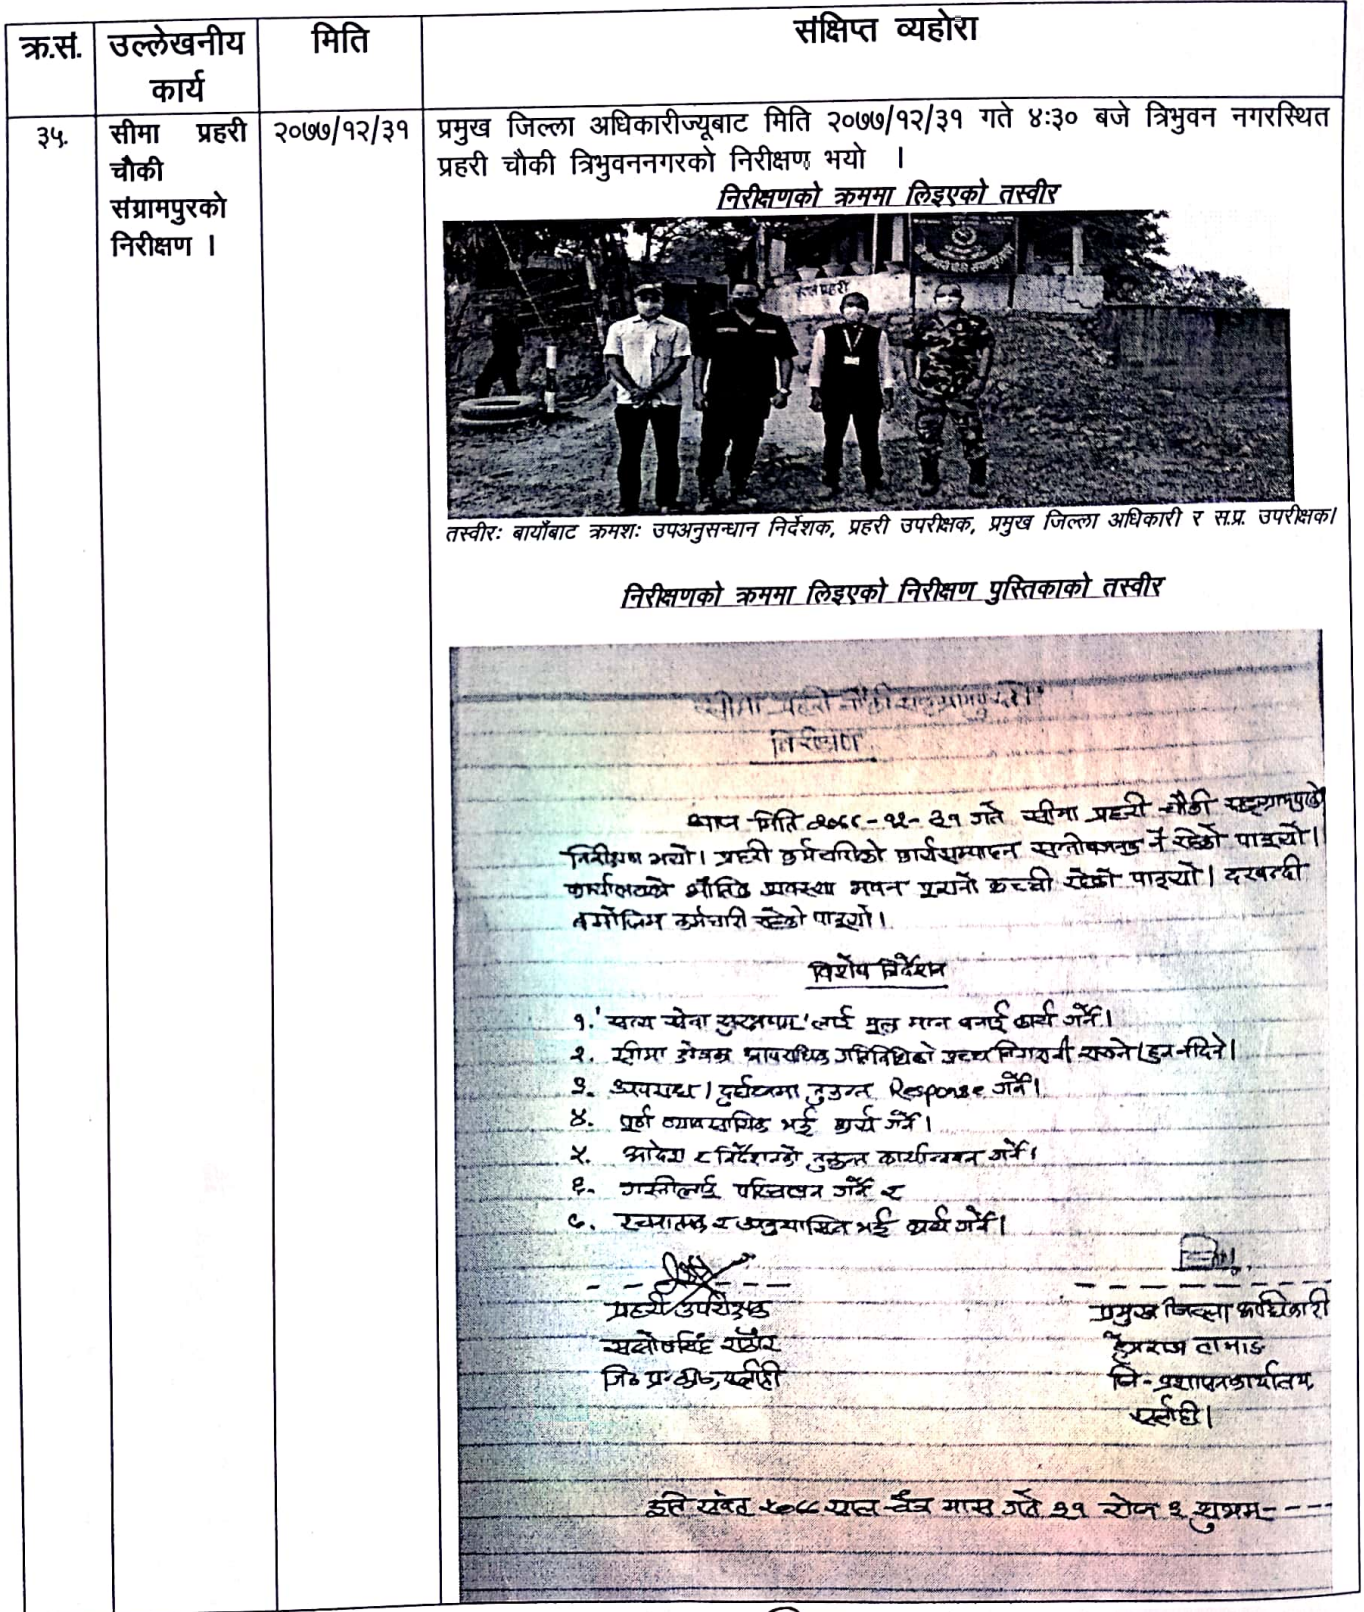 क्र.सं.
उल्लेखनीय
कार्य
मिति
संक्षिप्त व्यहोरा
३५.
सीमा प्रहरी
चौकी
संग्रामपुरको
निरीक्षण ।
२०७७/१२/३१
प्रमुख जिल्ला अधिकारीज्यूबाट मिति २०७७/१२/३१ गते ४:३० बजे त्रिभुवन नगरस्थित
प्रहरी चौकी त्रिभुवननगरको निरीक्षण भयो ।
निरीक्षणको क्रममा लिइएको तस्वीर
प्रहरी
तस्वीरः बायाँबाट क्रमशः उपअनुसन्धान निर्देशक, प्रहरी उपरीक्षक, प्रमुख जिल्ला अधिकारी र स.प्र. उपरीक्षक।
निरीक्षणको क्रममा लिइएको निरीक्षण पुस्तिकाको तस्वीर
सीमा प्रहरी चौकी सङ्ग्रामपुरको
निरीक्षण
आज मिति २०७७-१२-३१ गते सीमा प्रहरी चौकी सङ्ग्रामपुरको
निरीक्षण भयो। प्रहरी कर्मचारीको कार्यसम्पादन सन्तोषजनक नै रहेको पाइयो।
कार्यालयको भौतिक अवस्था भवन पुरानो कच्ची रहेको पाइयो। दरबन्दी
बमोजिम कर्मचारी रहेको पाइयो।
विशेष निर्देशन
१. 'सत्य सेवा सुरक्षणम्' लाई मूल मन्त्र बनाई कार्य गर्ने।
२. सीमा आपराधिक गतिविधिको उच्च निगरानी राख्ने। हुन नदिने।
३. अपराध। दुर्घटनामा तुरुन्त Response गर्ने।
४. पूर्ण व्यावसायिक भई कार्य गर्ने।
५. आदेश र निर्देशनको तुरुन्त कार्यान्वयन गर्ने।
६. गस्तीलाई परिचालन गर्ने र
७. रचनात्मक र अनुशासित भई कार्य गर्ने।
प्रहरी उपरीक्षक
सन्तोषसिंह राठौर
जि.प्र.का., सर्लाही
प्रमुख जिल्ला अधिकारी
तामाङ
जि. प्रशासन कार्यालय,
सर्लाही।
इति संवत् २०७७ साल चैत्र मास गते ३१ रोज ३ शुभम्----